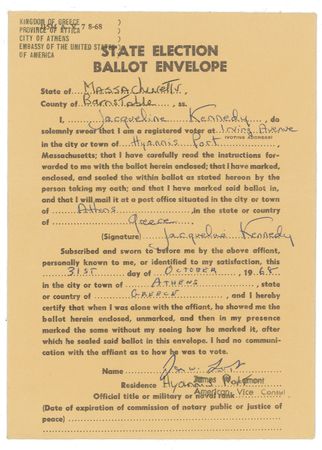 KINGDOM OF GREECE )
PROVINCE OF ATTICA )
CITY OF ATHENS )
EMBASSY OF THE UNITED STATES )
OF AMERICA )
7 8-68
STATE ELECTION
BALLOT ENVELOPE
State of Massachusetts
County of Barnstable, ss.
I, Jacqueline Kennedy, do
solemnly swear that I am a registered voter at Irving Avenue
(VOTING ADDRESS)
in the city or town of Hyannis Port,
Massachusetts; that I have carefully read the instructions for-
warded to me with the ballot herein enclosed; that I have marked,
enclosed, and sealed the within ballot as stated hereon by the
person taking my oath; and that I have marked said ballot in,
and that I will mail it at a post office situated in the city or town
of Athens, in the state or country
of Greece
(Signature) Jacqueline Kennedy
Subscribed and sworn to before me by the above affiant,
personally known to me, or identified to my satisfaction, this
31st day of October, 1968
in the city or town of ATHENS, state
or country of GREECE, and I hereby
certify that when I was alone with the affiant, he showed me the
ballot herein enclosed, unmarked, and then in my presence
marked the same without my seeing how he marked it, after
which he sealed said ballot in this envelope. I had no communi-
cation with the affiant as to how he was to vote.
Name
Residence Hyannis Port
Official title or military or naval rank American Vice Consul
(Date of expiration of commission of notary public or justice of
peace)